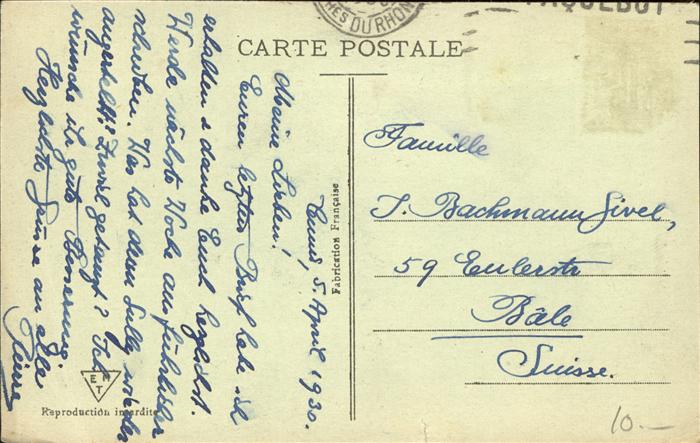 HES DU RHÔN
PAQUEBOT
CARTE POSTALE
Tunis, 5. April 1930.
Meine Lieben!
Euren letzten Brief habe ich
erhalten & danke Euch herzlichst.
Werde nächste Woche ausführlicher
schreiben. Was hat denn Sully wieder
angestellt? Zuviel getanzt? Ich
wünsche ihr gute Besserung
Herzlichste Grüsse an alle
Pierre
Fabrication Française
Famille
J. Bachmann Sivel,
59 Eulerstr
Bâle
Suisse.
E M
T
Reproduction interdite
10.—